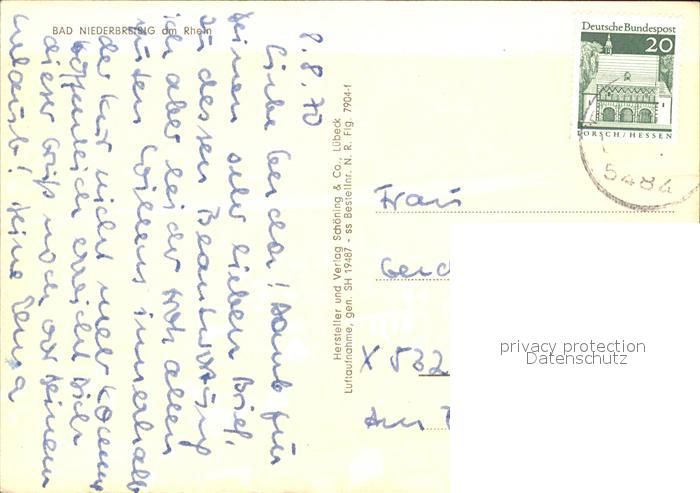 BAD NIEDERBREISIG am Rhein
8.8.70
Liebe Gerda! Dank für
Deinen sehr lieben Brief,
zu dessen Beantwortung
ich aber leider trotz allen
guten Willens innerhalb
der Kur nicht mehr komme
Hoffentlich erreicht Dich
dieser Gruß noch vor Deinem
Urlaub! Deine
Hersteller und Verlag Schöning & Co., Lübeck
Luftaufnahme, gen. SH 19487 - ss Bestellnr. N. R. Flg. 7904-f
Deutsche Bundespost
20
LORSCH/HESSEN
5484
Frau
Gerd
X 532
Am
privacy protection
Datenschutz